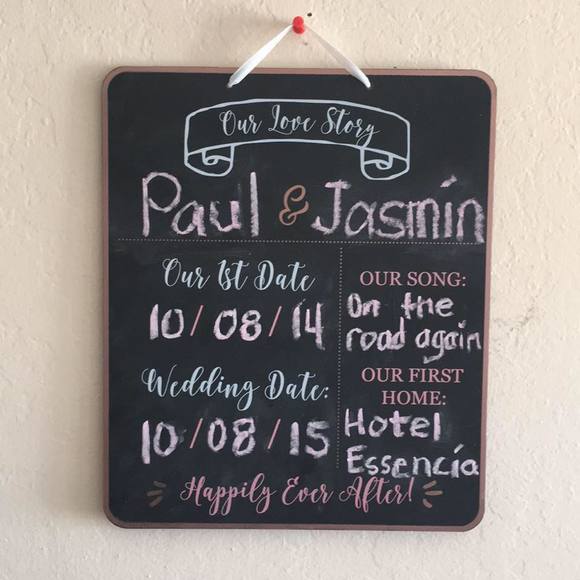 Our Love Story
Paul & Jasmín
Our 1st Date
10/08/14
Wedding Date:
10/08/15
OUR SONG:
On the
road again
OUR FIRST
HOME:
Hotel
Essencía
Happily Ever After!